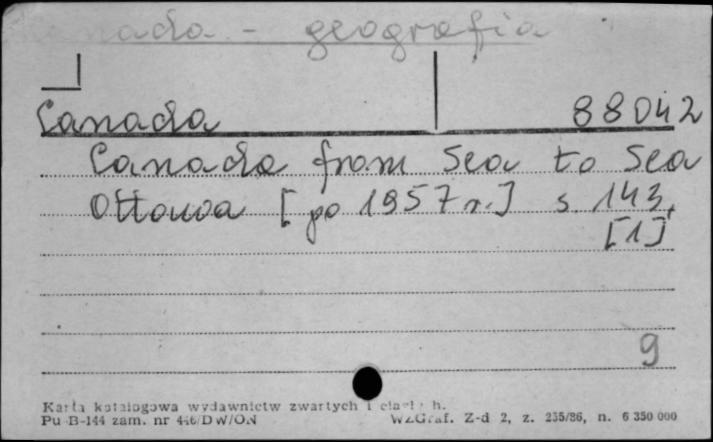 Kanada - geografia
Canada 88042
Canada from Sea to Sea
Ottowa [po 1957 r.] s. 143,
[1]
9
Karta katalogowa wydawnictw zwartych i ciągłych.
Pu-B-144 zam. nr 446/DW/ON WZGraf. Z-d 2, z. 235/86, n. 6 350 000